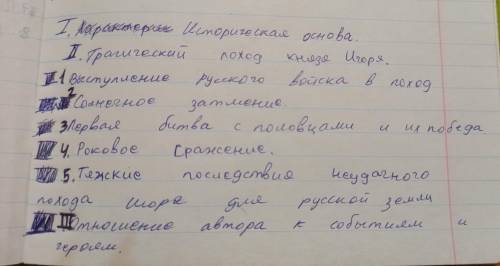 I. Историческая основа.
II. Трагический поход князя Игоря.
1 Выступление русского войска в поход
2 Солнечное затмение.
3 Первая битва с половцами и их победа
4. Роковое сражение.
5. Тяжские последствия неудачного
похода Игоря для русской земли
III Отношение автора к событиям и
героям.